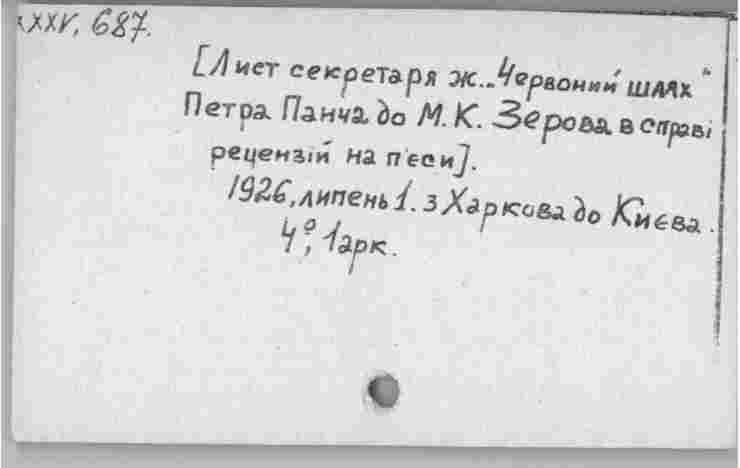 XXXV, 687.
[Лист секретаря ж. „Червоний шлях“
Петра Панча до М. К. Зерова в справі
рецензій на п'єси].
1926, липень 1. з Харкова до Києва.
4°, 1 арк.